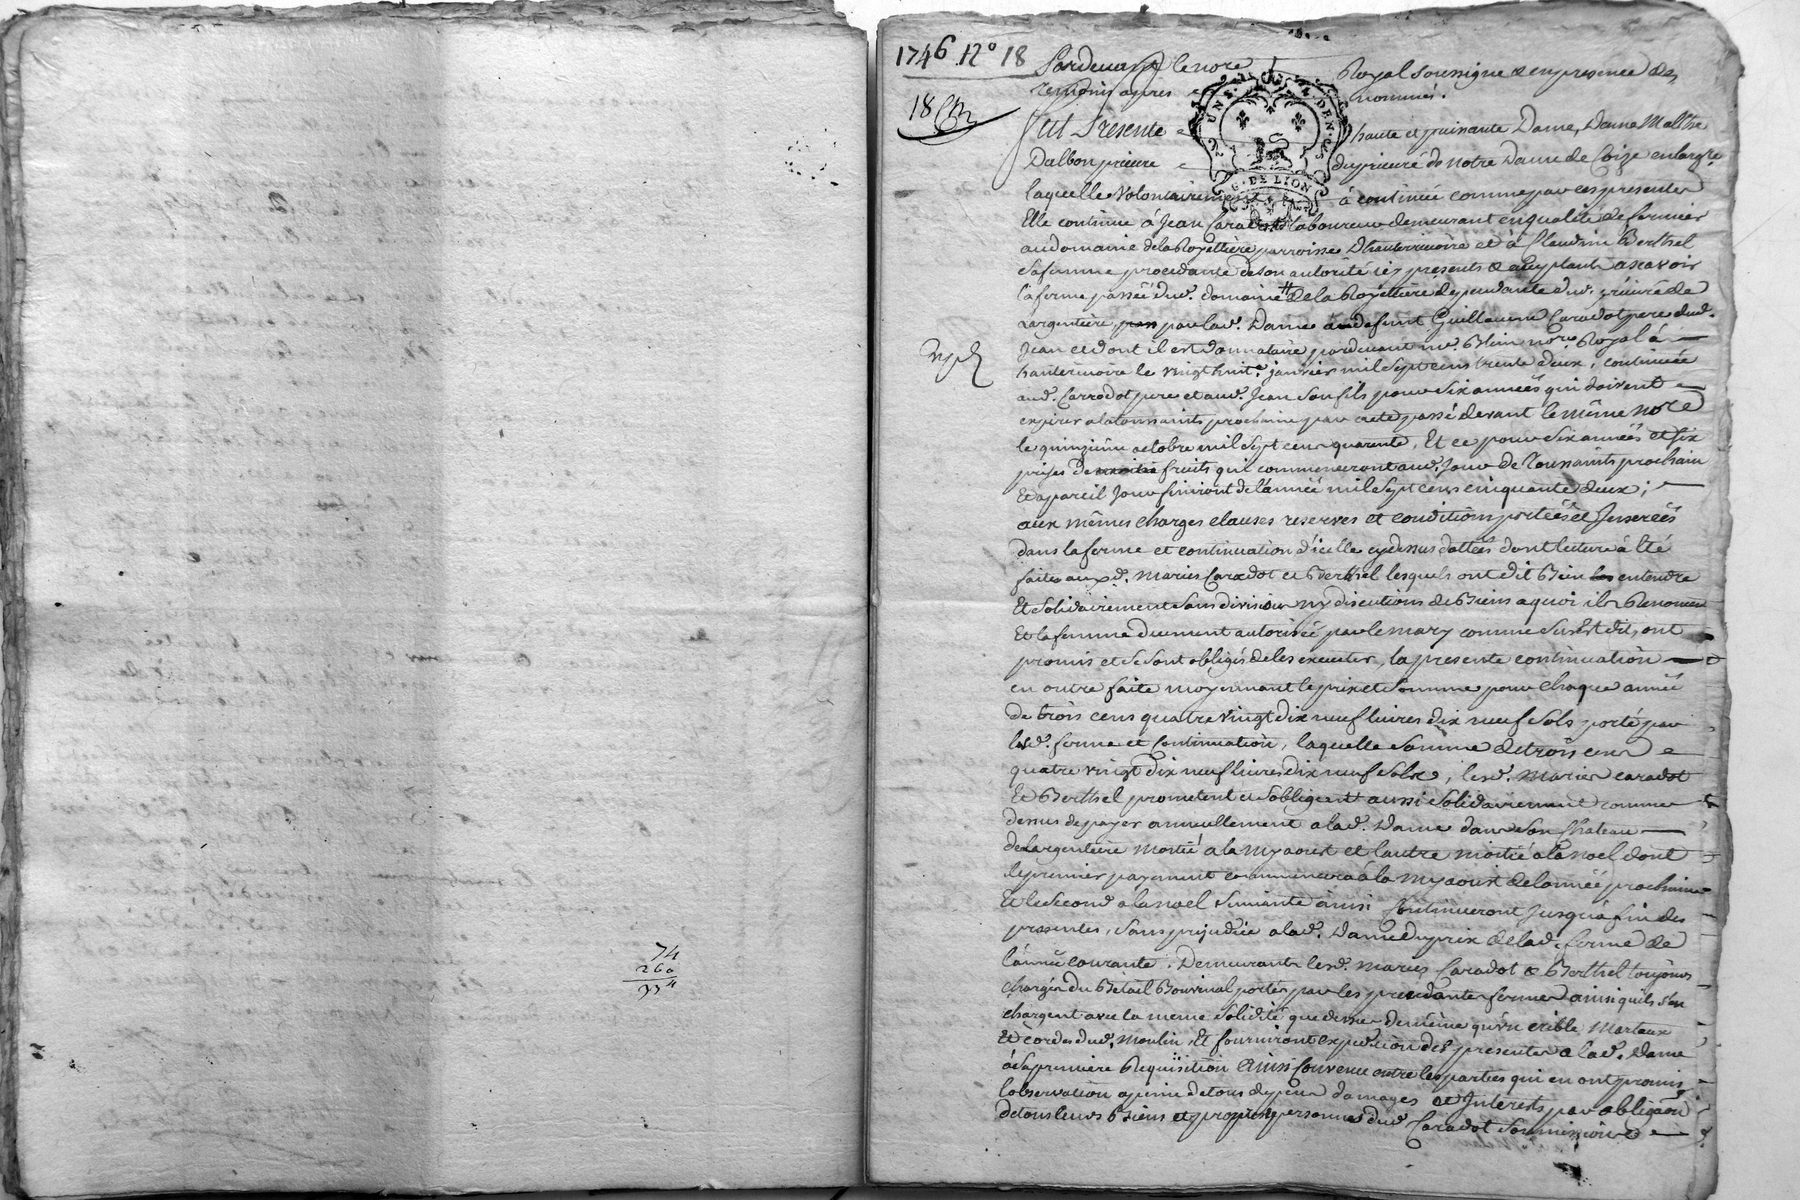 1746 N° 18
18 
Pardevant le no.re Royal soussigne & en presence des
temoins apres nommés.
Fut Presente haute et puissante Dame, Dame
Dalbon prieure du prieuré de Notre Dame de Coize en larg.re
laquelle volontairement à continué comme par ces presentes
Elle continue à Jean Caradot laboureur demeurant en qualité de fermier
au domaine de la Royettiere parroisse d'hauterivoire et à Claudine Berthel
sa femme procedante de son autorité icy presents & acceptants ascavoir
la ferme passée dud. domaine # de la Royettiere dependante dud. prieuré de
Largentiere, par lad. Dame au defunt Guillaume Caradot pere dud.
Jean et dont il est donnataire pardevant me Blein no.re Royal à
hauterivoire le vingt huit.e janvier mil sept cens trente deux, continuée
aud. Carrodot pere et aud. Jean son fils pour six années qui doivent
expirer a la toussaints prochaine par acte passé devant le même no.re
le quinzieme octobre mil sept cens quarente, Et ce pour six années et six
prises de fruits qui commenceront aud. jour de Toussaints prochain
Et a pareil jour finiront de l'année mil sept cens cinquante deux;
aux mêmes charges clauses reserves et conditions portées et Inserées
dans la ferme et continuation d'icelle cy dessus dattées dont lecture à êté
faite auxd. Maries Caradot et Berthel lesquels ont dit Bien entendre
Et solidairement sans division ny discutions de Biens a quoi ils Renoncent
Et la femme duement autorisée par le mary comme sus Est dit, ont
promis et se sont obligés de les executer, la presente continuation
en outre faite moyennant le prix et somme pour chaque année
de trois cens quatre vingt dix neuf livres dix neuf sols porté par
lesd. ferme et continuation, laquelle somme de trois cens
quatre vingt dix neuf livres dix neuf sols, lesd. Maries Caradot
Et Berthel prometent et s'obligent aussi solidairement comme
dessus de payer annuellement a lad. Dame dans son Chateau
de Largentiere moitié a la my aoust et l'autre moitié a la noel dont
le premier payement commencera à la my aoust de l'année prochaine
Et le second à la noel suivante ainsi continueront jusqu'a fin des
presentes, sans prejudice a lad. Dame du prix de lad. ferme de
l'année courante. Demeurants lesd. maries Caradot & Berthel toujours
chargés du Betail Bouvinal portés par les precedantes fermes ainsi quils s'en
chargent avec la meme solidité que dessus de même qu'un crible Marteaux
Et cordes dud. Moulin, Et fourniront expedition des presentes a lad. Dame
à sa premiere Requisition Ainsi Convenu entre les parties qui en ont promis
l'observation a peine de tous depens damages et Interests par obligaon
de tous leurs Biens et propres personnes dud. Caradot soumissions
G. DE LION
74
260